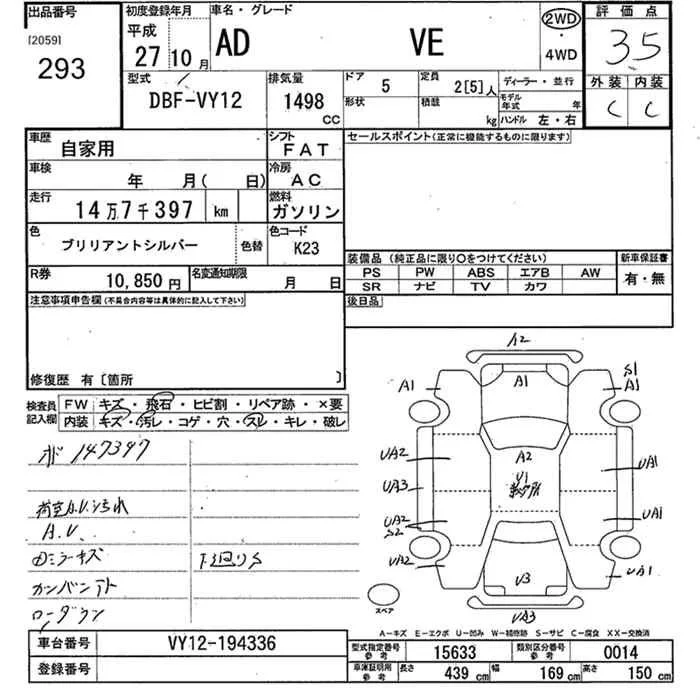 出品番号 初度登録年月 車名・グレード 2WD 評価点
[2059] 平成 AD VE ・ 3.5
293 27 10月 4WD
型式 排気量 ドア 5 定員 2[5]人 ディーラー・並行 外装 内装
DBF-VY12 1498 CC 形状 積載 kg モデル年式 年 C C
ハンドル 左・右
車歴 自家用 シフト FAT セールスポイント(正常に機能するものに限ります)
車検 年 月( 日) 冷房 AC
走行 14万7千397 km 燃料 ガソリン
色 ブリリアントシルバー 色替 色コード K23
装備品(純正品に限り○をつけてください) 新車保証書
PS PW ABS エアB AW 有・無
SR ナビ TV カワ
R券 10,850円 名変通知期限 月 日
後日品
注意事項申告欄(不具合内容等は具体的に記入して下さい)
修復歴 有〔箇所 〕
検査員記入欄 FW キズ・飛石・ヒビ割・リペア跡・×要
内装 キズ・汚れ・コゲ・穴・スレ・キレ・破レ
147397
荷室A.U.汚れ
A.U.
ミラーキズ 下廻りS
カンバンアト
ローダウン
A2
A1 A1 S1
A1
UA2 A2 UA1
UA3 U1
UA2 UA1
S2
UA2 U3 UA1
UA3
スペア
A-キズ E-エクボ U-凹み W-補修跡 S-サビ C-腐食 XX-交換済
車台番号 VY12-194336
登録番号
型式指定番号参考 15633 類別区分番号参考 0014
車庫証明用参考 長さ 439cm 幅 169cm 高さ 150cm